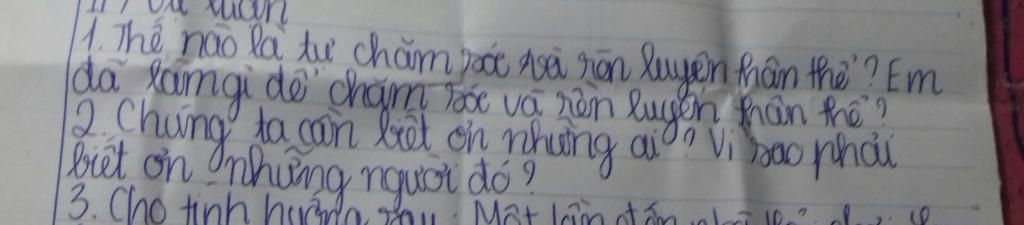 1. Thế nào là tự chăm sóc và rèn luyện thân thể? Em
đã làm gì để chăm sóc và rèn luyện thân thể?
2. Chúng ta cần biết ơn những ai? Vì sao phải
biết ơn những người đó?
3. Cho tình huống sau: Một lần